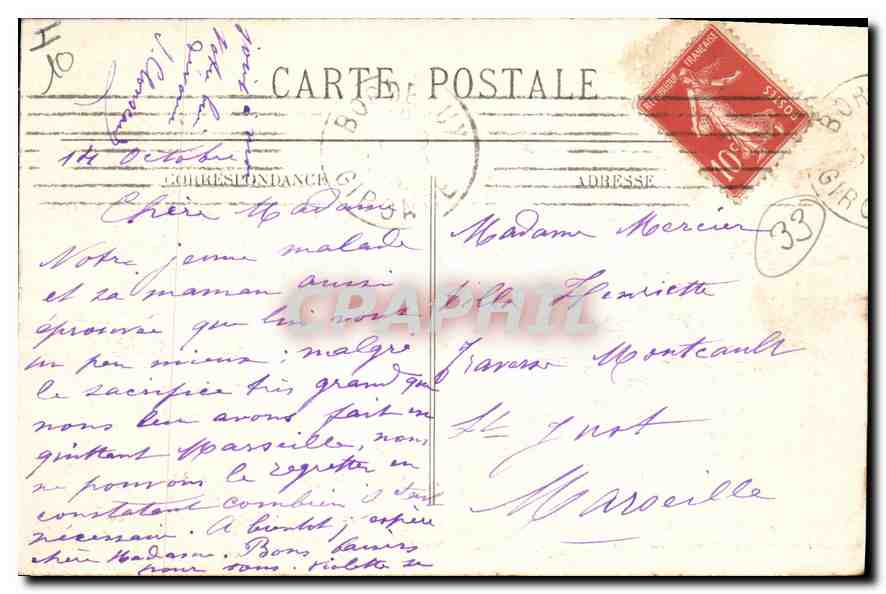 CARTE POSTALE
CORRESPONDANCE
ADRESSE
REPUBLIQUE FRANÇAISE
POSTES
10c
BORDEAUX
GIRONDE
33
14 Octobre
Chère Madame
Notre jeune malade
et sa maman aussi
éprouvée que lui vont
un peu mieux ; malgré
le sacrifice très grand que
nous leur avons fait en
quittant Marseille, nous
ne pouvons le regretter en
constatant combien il était
nécessaire. A bientôt j'espère
chère Madame. Bons baisers
pour vous. Violette se
joint à moi
Madame Mercier
Villa Henriette
Traverse Montcault
St Just
Marseille
CPAPHIL